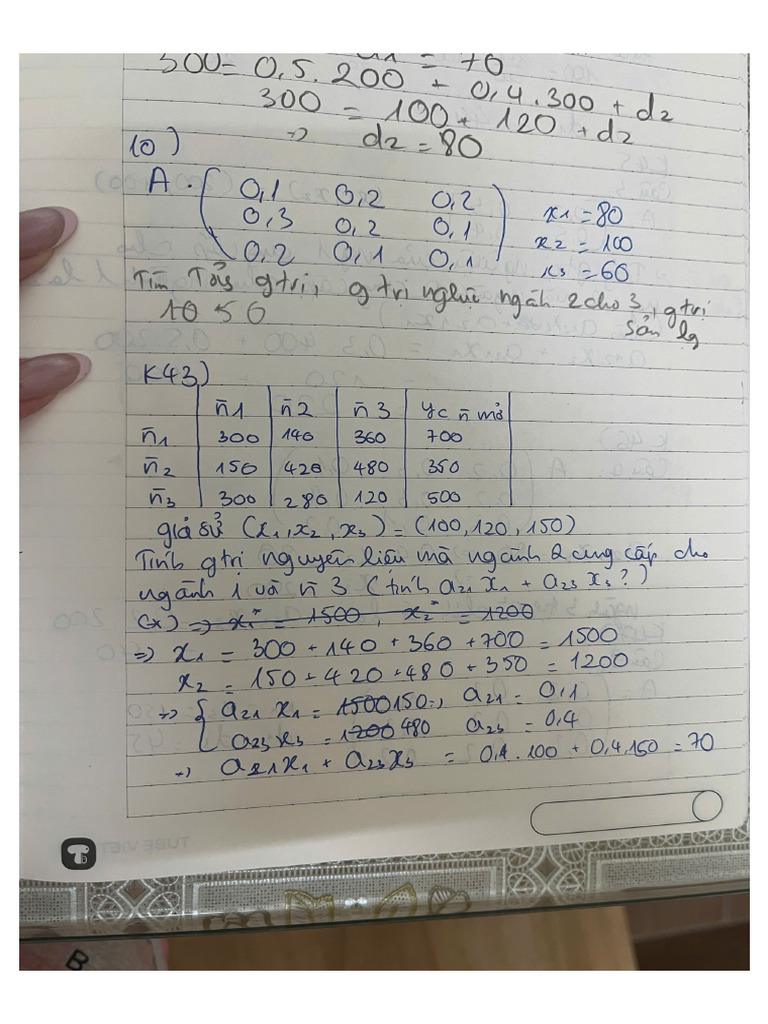 = 70
300 = 0,5.200 + 0,4.300 + d2
300 = 100 + 120 + d2
=> d2 = 80
10)
A = ( 0,1 0,2 0,2
0,3 0,2 0,1 x1 = 80
0,2 0,1 0,1 ) x2 = 100
x3 = 60
Tìm Tổng gtrị, gtrị ngliệu ngành 2 cho 3, gtrị
10 50 sản lg
K43)
n̄1 n̄2 n̄3 yc n̄ mở
n̄1 300 140 360 700
n̄2 150 420 480 350
n̄3 300 280 120 500
giả sử (x1, x2, x3) = (100, 120, 150)
Tính gtrị nguyên liệu mà ngành 2 cung cấp cho
ngành 1 và n̄ 3 (tính a21 x1 + a23 x3?)
(x) => x1* = 1500, x2* = 1200
=> x1 = 300 + 140 + 360 + 700 = 1500
x2 = 150 + 420 + 480 + 350 = 1200
=> { a21 x1 = 1500 150 => a21 = 0,1
a23 x3 = 1200 480 a23 = 0,4
=> a21x1 + a23x3 = 0,1.100 + 0,4.150 = 70
TUBE VIET
B